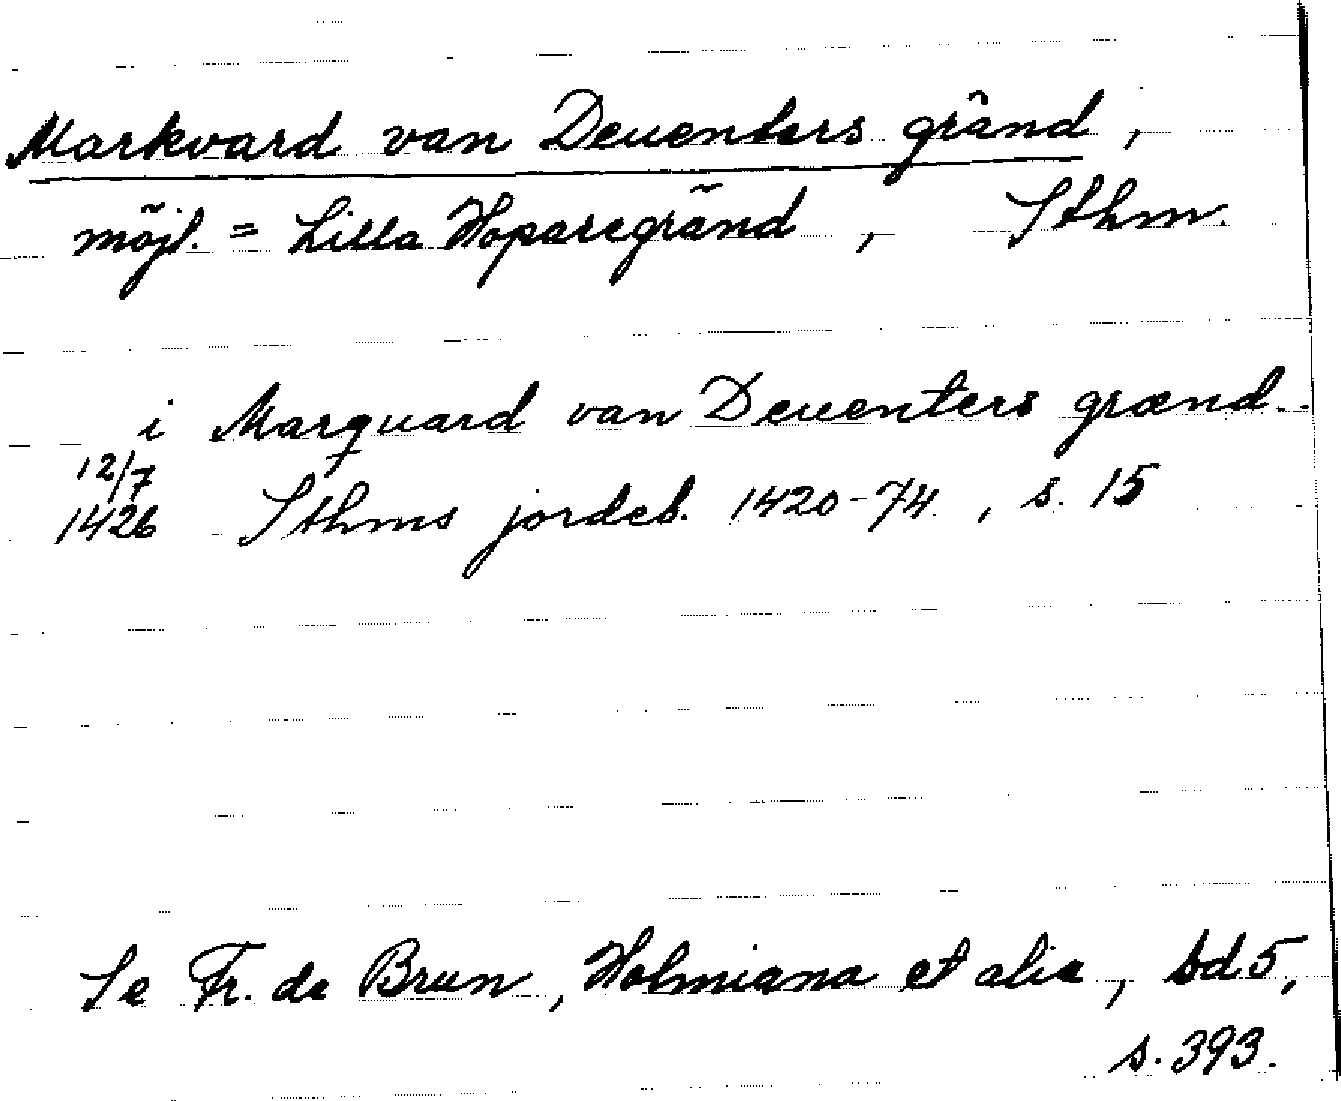 Markvard van Deventers gränd,
möjl. = Lilla Hoparegränd, Sthm.
i Marquard van Deuenters grænd.
12/7
1426 Sthms jordeb. 1420-74, s. 15
Se Fr. de Brun, Holmiana et alia, bd 5,
s. 393.